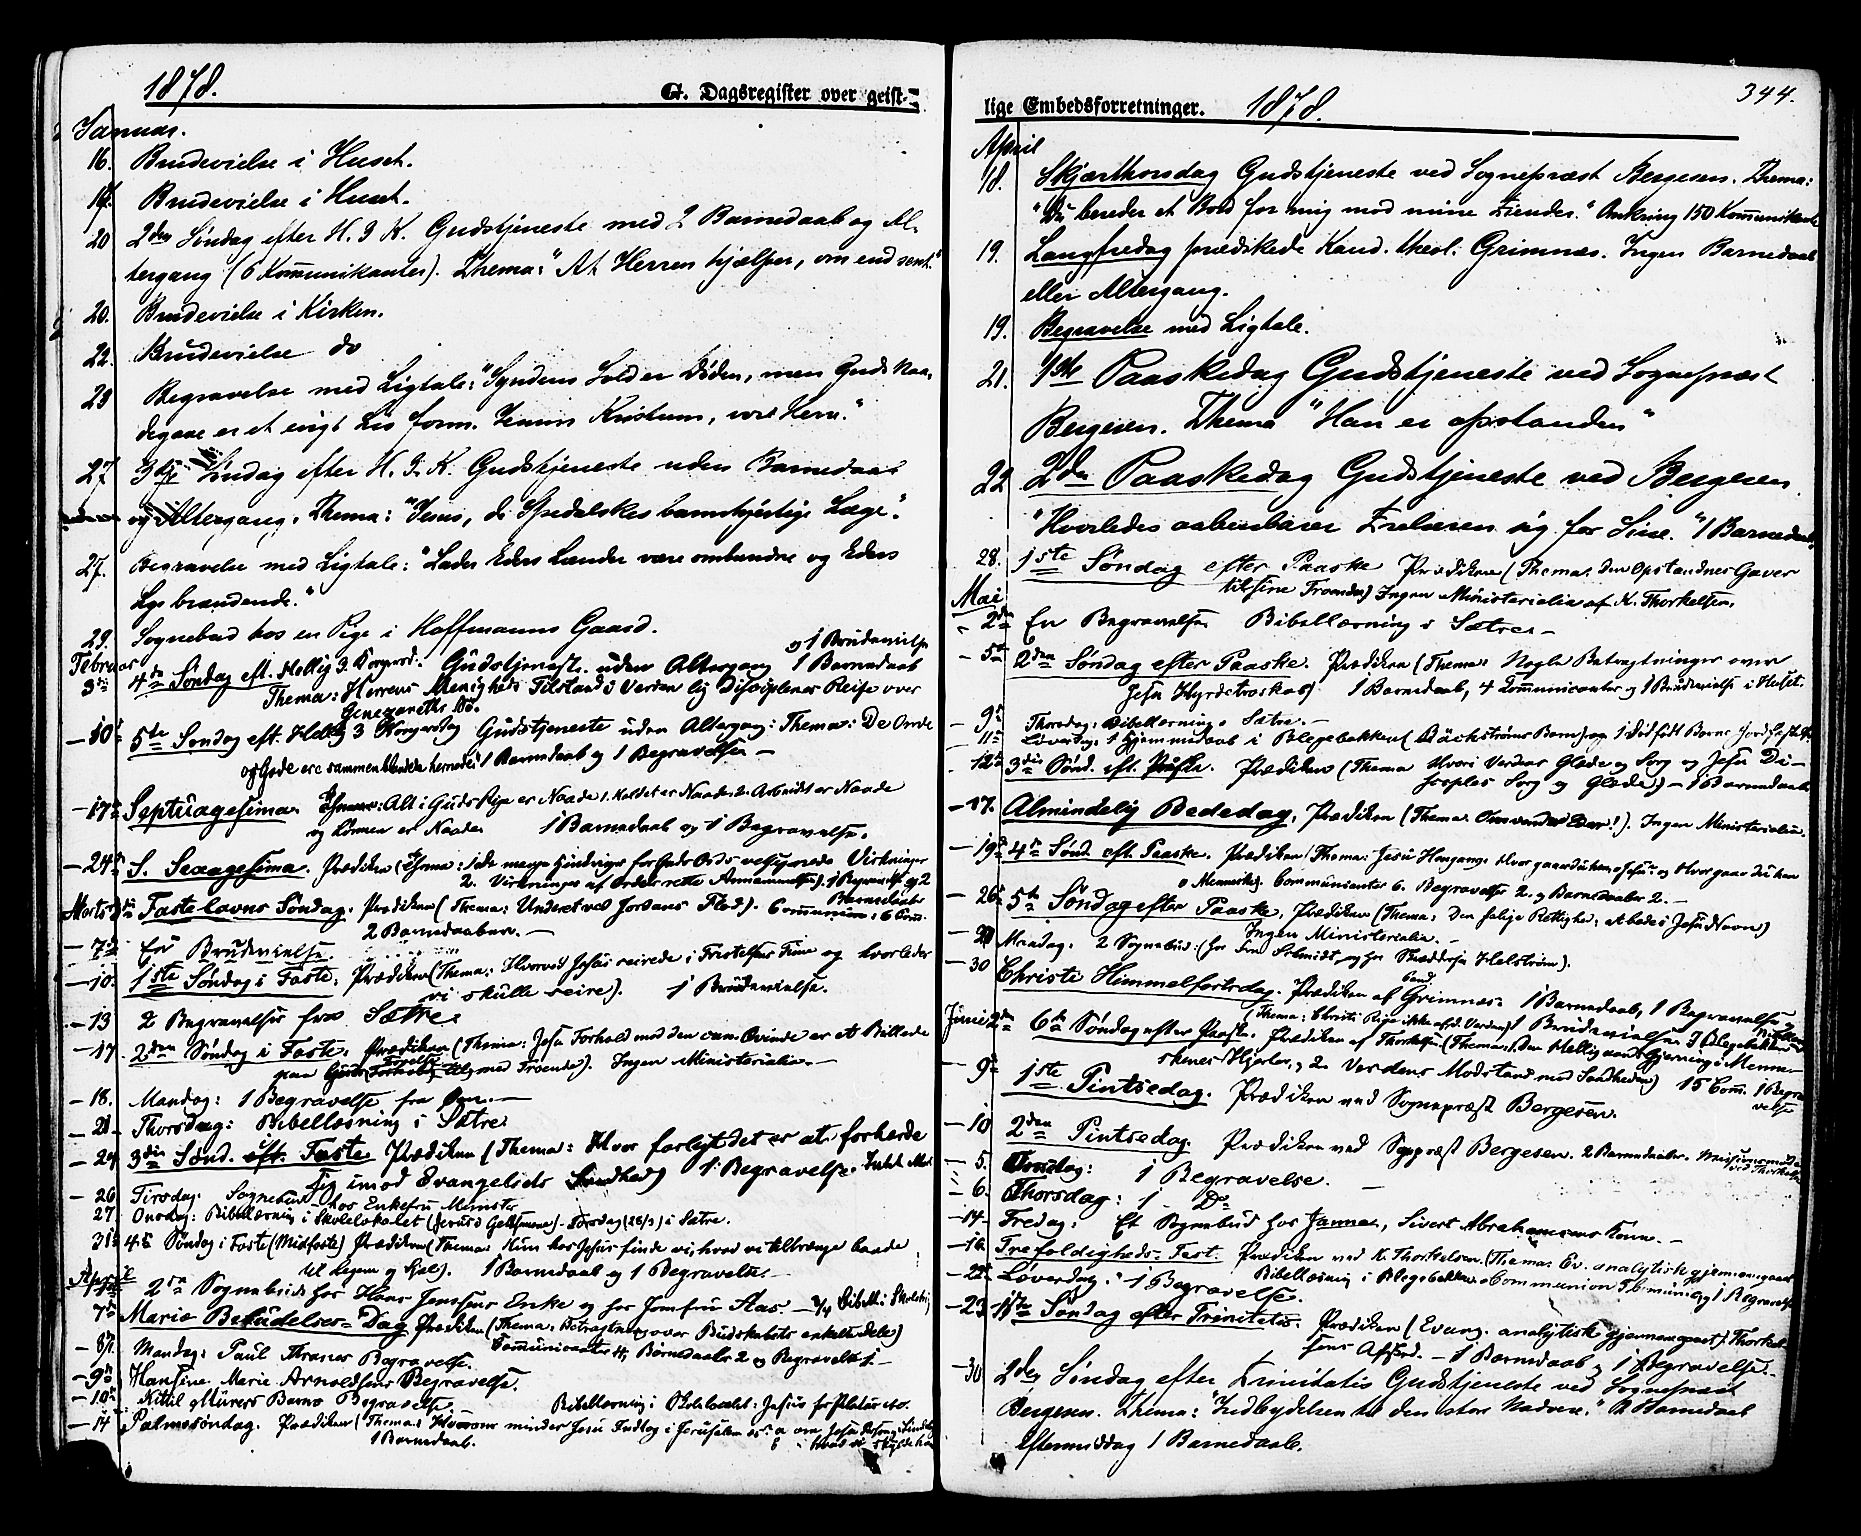 1878.
G. Dagsregister over geist-
Januar.
16. Brudevielse i Huset.
Brudevielse i Huset.
20 2den Søndag efter H. 3 K. Gudstjeneste med 2 Barnedaab og Al-
tergang (6 Kommunikanter). Thema: "At Herren hjælper, om end sent."
20. Brudevielse i Kirken.
22. Brudevielse do
23 Begravelse med Ligtale: "Syndens Sold er Døden, men Guds Naa-
degave er et evigt Liv form. Jesum Kristum, vor Herre."
27. 3dje Søndag efter H. 3. K. Gudstjeneste uden Barnedaab
og Altergang. Thema: "Jesus, de Spedalskes barmhjertige Læge".
27. Begravelse med Ligtale: "Lader Eders Lænder være ombundne og Eders
Lys brændende."
29. Sognebud hos en Pige i Hoffmanns Gaard.
og 1 Brudevielse
Februar
3die 4de Søndag eft. Hellig 3 Kongersd. Gudstjeneste uden Altergang 1 Barnedaab
Thema: Herrens Menigheds Tilstand i Verden lig Disciplenes Reise over
Genezareths Sø.
- 10de 5te Søndag eft. Hellig 3 Kongersdag Gudstjeneste uden Altergang: Thema: De Onde
og Gode ere sammenblandede hernede. 1 Barnedaab og 1 Begravelse -
- 17de Septuagesima. Thema: Alt i Guds Rige er Naade 1. Kaldet er Naade 2. Arbeidet er Naade
og Lønnen er Naade. 1 Barnedaab og 1 Begravelse.
- 24de S. Sexagesima. Prædiken (Thema: 1 de mange Hindringer for Guds Ords velsignede Virkninger
2. Virkninger af Ordets rette Annammelse). 1 Begravelse og 2
Barnedaabe
Marts 3die Fastelavns Søndag. Prædiken (Thema: Underet ved Jordans Flod). Communion: 6 Com.
2 Barnedaaber. -
- 7de En Brudevielse
- 10. 1ste Søndag i Faste. Prædiken (Thema: Hvorved Jesus seirede i Fristelsens Time og hvorledes
vi skulle seire). 1 Brudevielse.
- 13 2 Begravelser fra Sætre.
- 17. 2den Søndag i Faste. Prædiken (Thema: Jesu Forhold mod den can. Qvinde er et Billede
paa Guds Forhold med Troende). Ingen Ministerialia. -
- 18. Mandag: 1 Begravelse fra -
- 21 Thorsdag: Bibellæsning i Sætre
- 24 3die Sønd. Faste Prædiken (Thema: Hvor farligt det er at forhærde
sig imod Evangeliets Sandhed) 1 Begravelse.
- 26 Tirsdag: Sognebud hos Enkefru Menister
27. Onsdag: Bibellæsning i Skolelokalet (Jesus i Gethsemane) - Torsdag (28/3) i Sætre.
31te 4de Søndag i Faste (Midfaste) Prædiken (Thema: Kun hos Jesus finde vi, hvad vi tiltrænge baade
til Legeme og Sjel). 1 Barnedaab og 1 Begravelse. -
April
2 Sognebud: hos Hans Jenssens Enke og hos Jomfru Aas -
7de Mariæ Bebudelses-Dag Prædiken (Thema: Betragtning over Budskabets enkelte Dele)
Communicanter 4, Børnedaaber 2 og Begravelse 1. -
- 8de Mandag: Paul Thranes Begravelse.
- 9de Hansine Marie Arnoldsens Begravelse.
- 10de Kittil Mürers Barns Begravelse. Bibellæsning i Skolelocalet: Jesus for Pilatus.
- 14 Palmesøndag. Prædiken (Thema: Hvorom minder Jesu Indtog i Jerusalem os: a om Jesu
1 Barnedaab.

344.
lige Embedsforretninger. 1878.
April
18. Skjærthorsdag Gudstjeneste ved Sognepræst Bergesen. Thema:
"Du bereder et Bord for mig mod mine Fiender." Omkring 150 Kommunikante
19. Langfredag prædikede Kand. theol. Grimnæs. Ingen Barnedaab
eller Altergang.
19. Begravelse med Ligtale.
21. 1ste Paaskedag Gudstjeneste ved Sognepræst
Bergesen. Thema "Han er opstanden"
22 2den Paaskedag Gudstjeneste ved Bergesen
"Hvorledes aabenbarer Frelseren sig for Sine." 1 Barnedaab
28. 1ste Søndag efter Paaske Prædiken (Thema: Den Opstandnes Gaver
til sine Troende) Ingen Ministerialia af K. Thorkelsen.
Mai
- 2den En Begravelse Bibellæsning i Sætre -
- 5te 2den Søndag efter Paaske. Prædiken (Thema: Nogle Betragtninger over
Jesu Hyrdetroskab) 1 Barnedaab, 4 Communicanter og 1 Brudevielse i Huset.
- 9de Thorsdag: Bibellæsning i Sætre. -
- 11te Løverdag: 1 Hjemmedaab i Blegebakken (Bäckstrøms Barn) og 1 dødfødt Barns Jordfæstelse.
- 12te 3die Sønd. eft. Paaske. Prædiken (Thema Hvori Verdens Glæde og Sorg og Jesu Di-
sciples Sorg og Glæde) - 1 Barnedaab
- 17. Almindelig Bededag. Prædiken (Thema: Omvender Eder!). Ingen Ministerialia.
- 19de 4de Sønd. eft. Paaske. Prædiken (Thema: Jesu Hengang: Hvor gaar du hen o Jesu og Hvor gaar du hen
o Menneske). Communicanter 6. Begravelse 2. og Barnedaaber 2. -
- 26de 5te Søndag efter Paaske. Prædiken (Thema: Den salige Rettighed at bede i Jesu Navn)
Ingen Ministerialia. -
Mandag: 2 Sognebud: (hos Schmidt, og hos Helstrøm).
- 30 Christi Himmelfartsdag. Prædiken af Cand Grimnæs: 1 Barnedaab, 1 Begravelse
(Thema: Christi Rige ikke af d. Verden) 1 Brudevielse
Juni 2den 6te Søndag efter Paaske. Prædiken af Thorkelsen (Thema: 1. Den Hellig Aands Gjerning i Menne-
skenes Hjerter, 2. Verdens Modstand mod Sandheden) 15 Com. 1 Begra-
velse
- 9de 1ste Pintsedag. Prædiken ved Sognepræst Bergesen.
- 10 2den Pintsedag. Prædiken ved Sognpræst Bergesen. 2 Barnedaaber.
- 5. Onsdag: 1 Begravelse.
- 6. Thorsdag: 1 Do
- 14. Fredag: Et Sognebud hos Janna, Sivert Abrahamsens Kone. -
- 16. Trefoldigheds-Fest. Prædiken ved K. Thorkelsen. (Thema: Ev. analytisk gjennemgaaet
Bibellæsning i Blegebakken. Communion 1 Begravelse
- 22de Løverdag: 1 Begravelse.
- 23 1ste Søndag efter Trinitatis. Prædiken (Evang. analytisk gjennemgaaet) Thorkel-
sens Afsked. - 1 Barnedaab og 1 Begravelse. -
- 30 2den Søndag efter Trinitatis Gudstjeneste ved Sognepræst
Bergesen. Thema: "Indbydelsen til den store Nadvere." Barnedaab
Eftermiddag 1 Barnedaab.